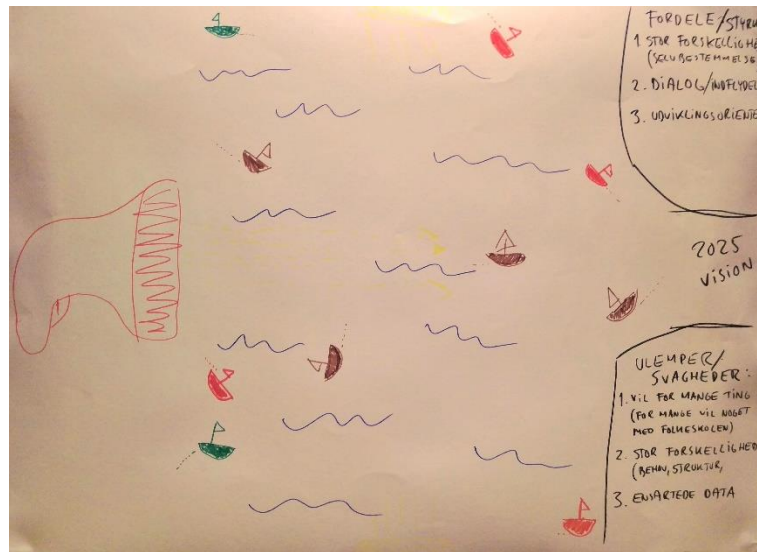 FORDELE/STYRK
1 STOR FORSKELLIGHE
(SELVBESTEMMELSE
2. DIALOG/INDFLYDEL
3. UDVIKLINGSORIENTE
2025
VISION
ULEMPER/
SVAGHEDER:
1. VIL FOR MANGE TING
(FOR MANGE VIL NOGET
MED FOLKESKOLEN)
2. STOR FORSKELLIGHED
(BEHOV, STRUKTUR,
3. ENSARTEDE DATA